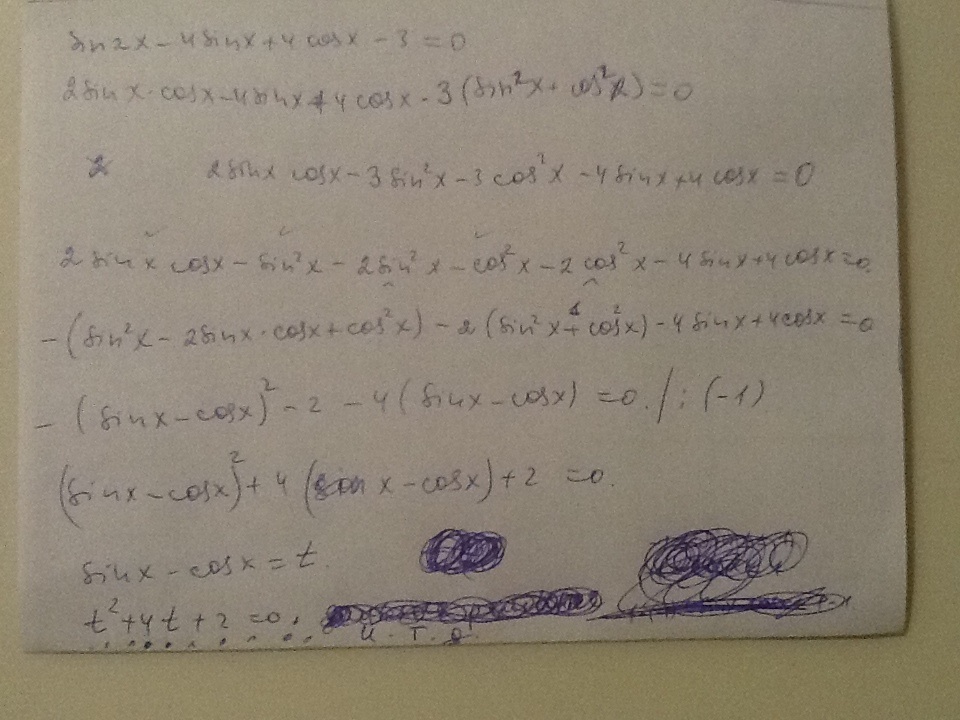 sin2x - 4sinx + 4cosx - 3 = 0
2sinx·cosx - 4sinx + 4cosx - 3(sin²x + cos²x) = 0
2 2sinx cosx - 3sin²x - 3cos²x - 4sinx + 4cosx = 0
2sinx cosx - sin²x - 2sin²x - cos²x - 2cos²x - 4sinx + 4cosx = 0.
-(sin²x - 2sinx·cosx + cos²x) - 2(sin²x + cos²x) - 4sinx + 4cosx = 0
-(sinx - cosx)² - 2 - 4(sinx - cosx) = 0. /:(-1)
(sinx - cosx)² + 4(sinx - cosx) + 2 = 0.
sinx - cosx = t.
t² + 4t + 2 = 0.
и.т.д.